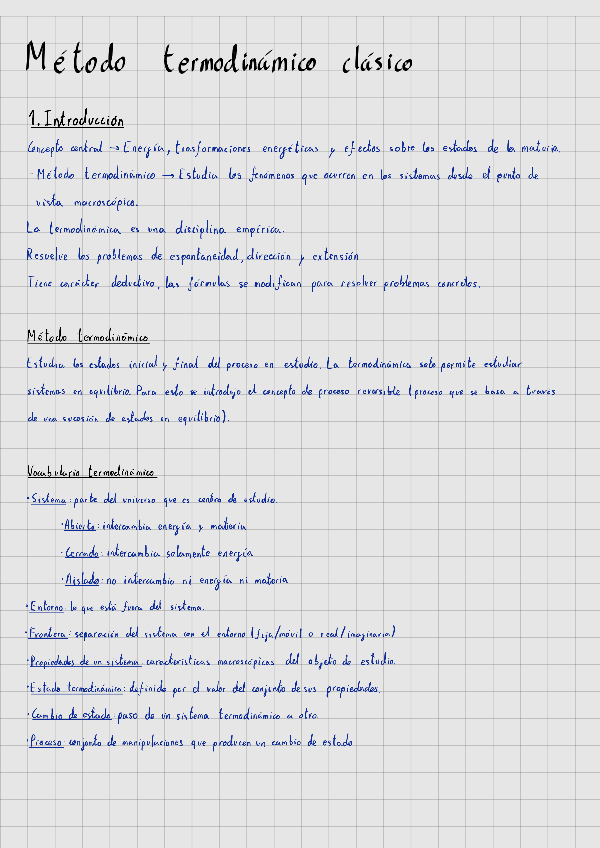 Método termodinámico clásico
1. Introducción
Concepto central → Energía, trasformaciones energéticas y efectos sobre los estados de la materia.
· Método termodinámico → Estudia los fenómenos que ocurren en los sistemas desde el punto de
vista macroscópico.
La termodinámica es una disciplina empírica.
Resuelve los problemas de espontaneidad, direccion y extensión
Tiene carácter deductivo, las fórmulas se modifican para resolver problemas concretos.
Método termodinámico
Estudia los estados inicial y final del proceso en estudio. La termodinámica solo permite estudiar
sistemas en equilibrio. Para esto se introdujo el concepto de proceso reversible (proceso que se basa a traves
de una sucesión de estados en equilibrio).
Vocabulario termodinámico
· Sistema: parte del universo que es centro de estudio.
· Abierto: intercambia energía y materia
· Cerrado: intercambia solamente energía
· Aislado: no intercambia ni energía ni materia
· Entorno: lo que está fuera del sistema.
· Frontera: separación del sistema con el entorno (fija/móvil o real/imaginaria)
· Propiedades de un sistema: características macroscópicas del objeto de estudio.
· Estado termodinámico: definido por el valor del conjunto de sus propiedades.
· Cambio de estado: paso de un sistema termodinámico a otro.
· Proceso: conjunto de manipulaciones que producen un cambio de estado